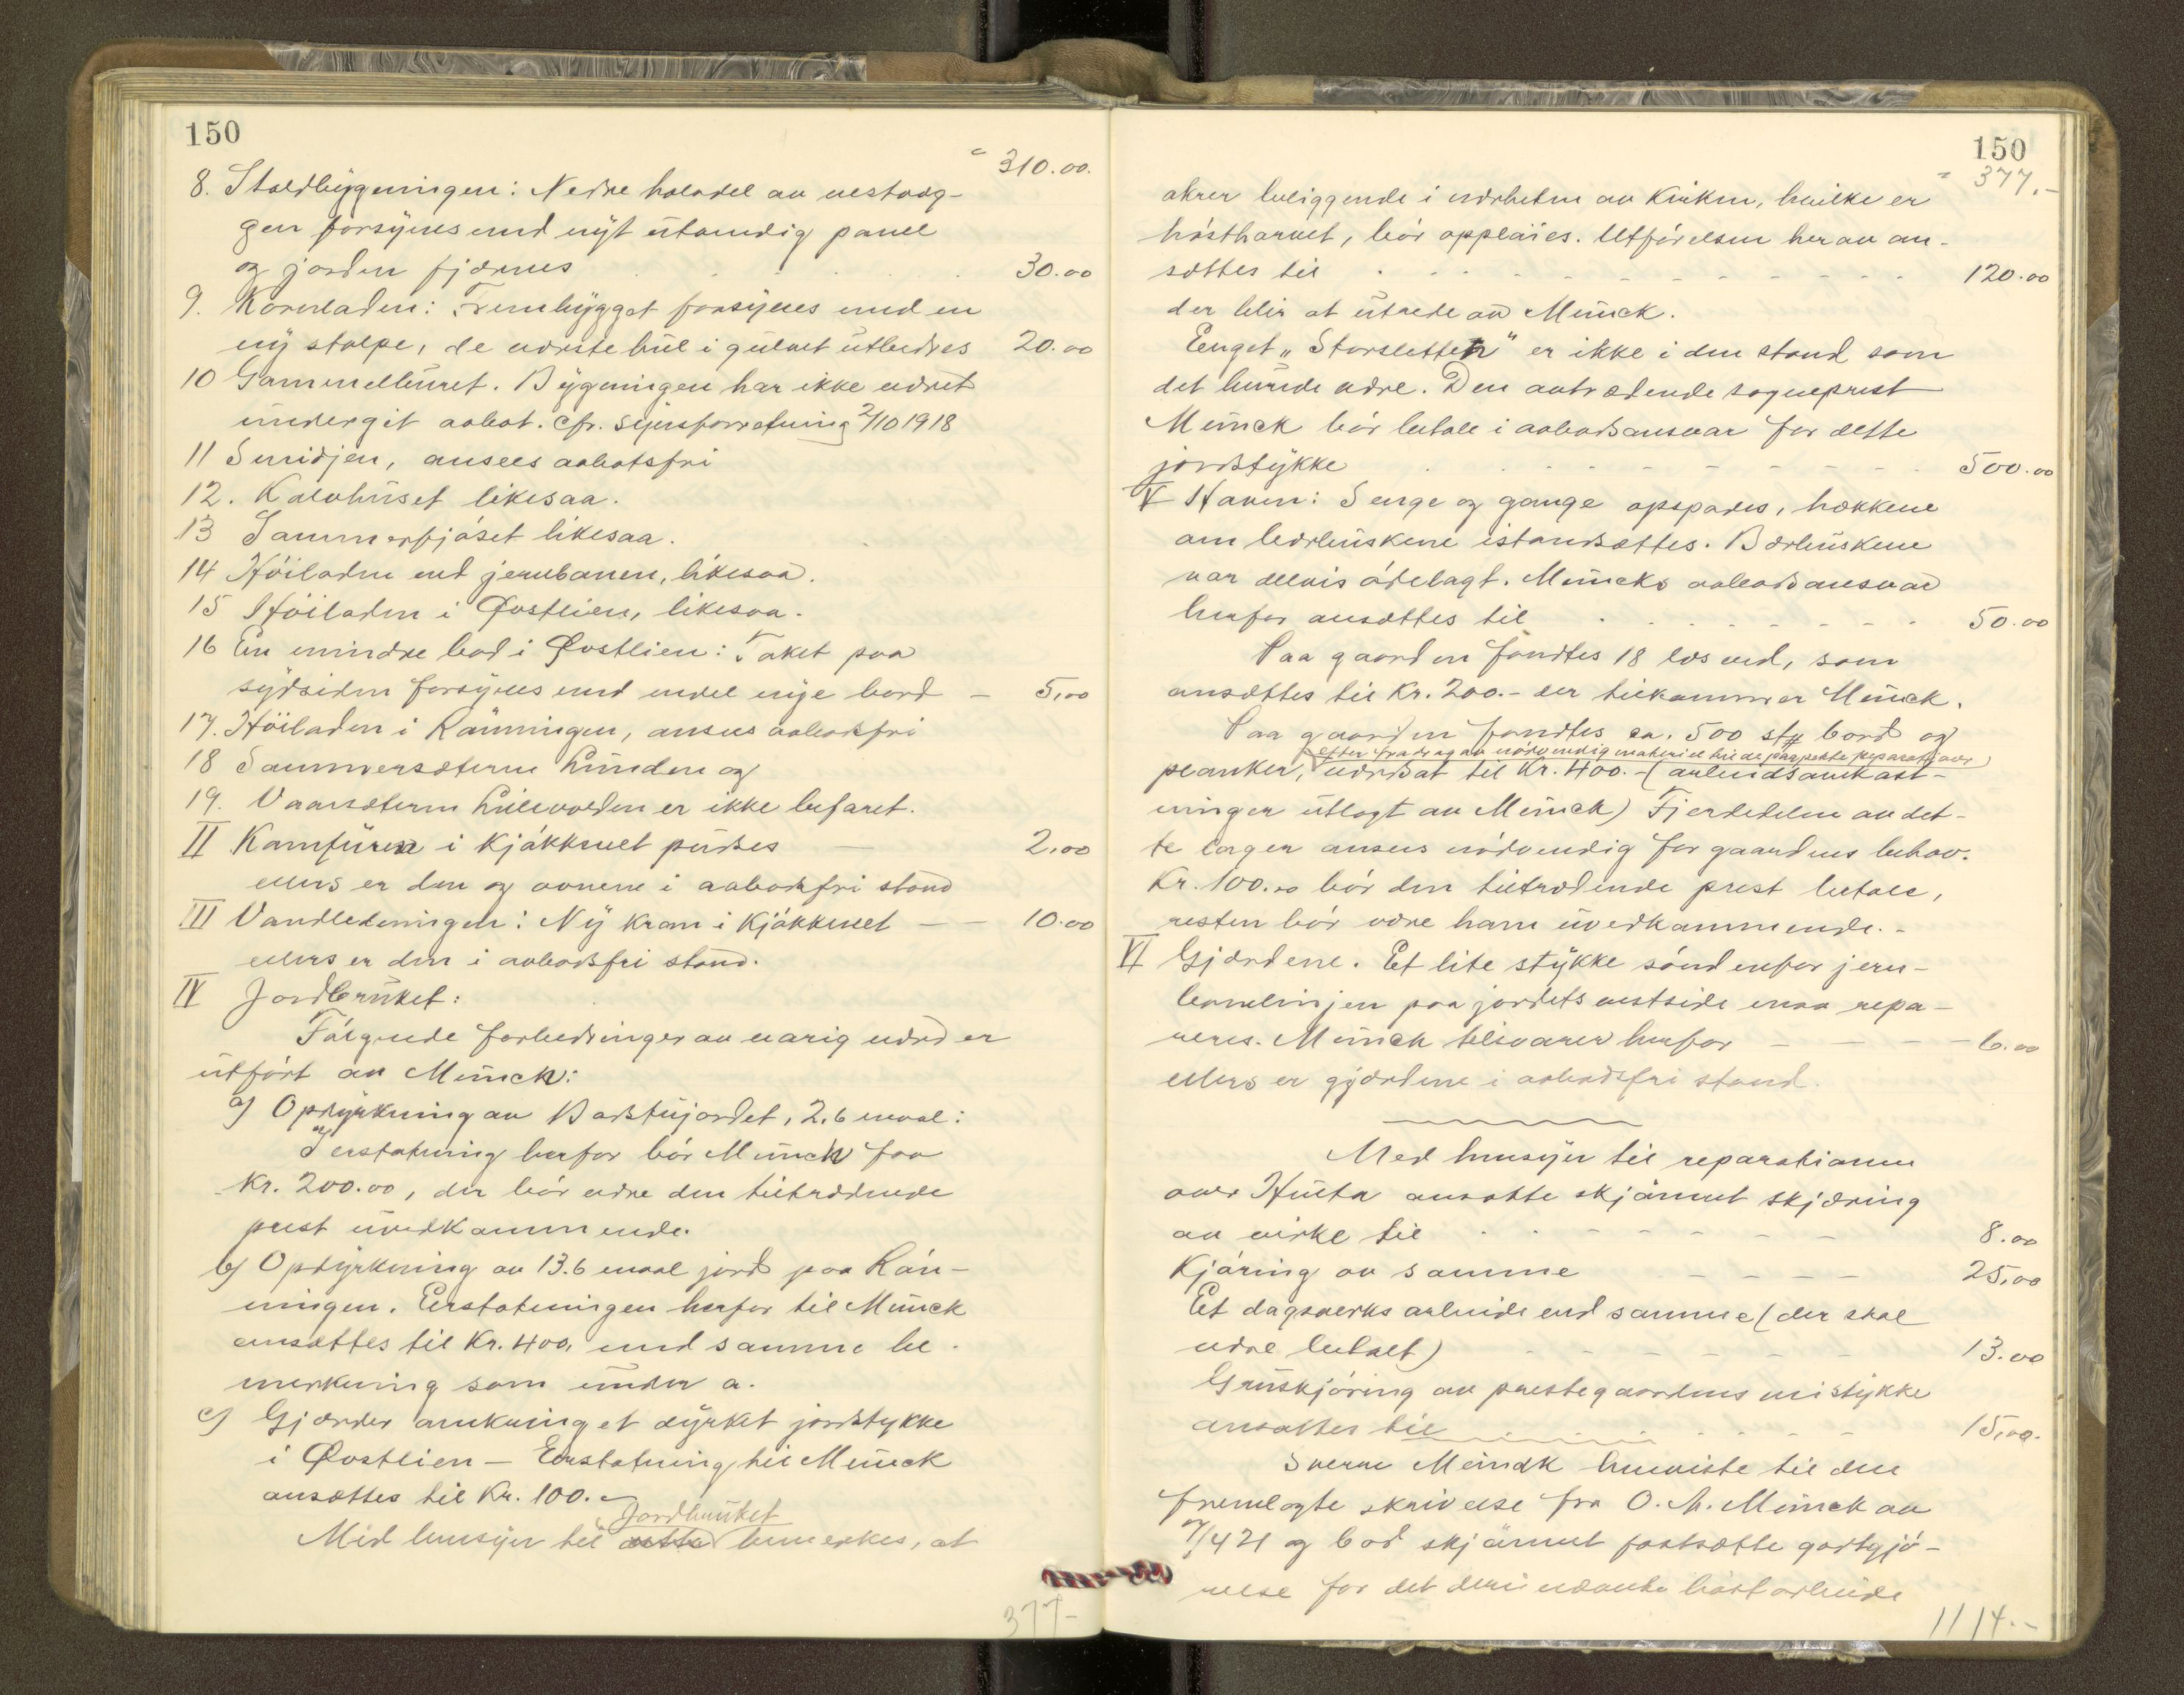 150
" 310.00.
8. Staldbygningen: Nedre halvdel av vestvæg-
gen forsynes med nyt utvendig panel
og jorden fjernes . . . . . 30.00
9. Kornladen: Trembygget forsynes med en
ny stolpe, de værste hul i gulvet utbedres 20.00
10 Gammelburet. Bygningen har ikke været
undergit aabot. Cfr. synsforretning 2/10 1918
11 Smidjen, ansees aabotsfri
12. Kalvhuset likesaa.
13 Sommerfjøset likesaa.
14 Høiladen ved jernbanen, likesaa.
15 Høiladen i Østlien, likesaa.
16 En mindre bod i Østlien: Taket paa
sydsiden forsynes med endel nye bord – 5,00
17. Høiladen i Rønningen, ansees aabotsfri
18 Sommersæteren Linden og
19. Vaarsæteren Lillevolden er ikke befaret.
II Komfuren i kjøkkenet pudses — 2,00
ellers er den og ovnene i aabotsfri stand
III Vandledningen: Ny kran i kjøkkenet — — 10.00
ellers er den i aabotsfri stand.
IV Jordbruket:
Følgende forbedringer av varig værd er
utført av Münck:
a) Opdyrkning av Badstujordet, 2,6 maal:
I erstatning herfor bør Münck faa
Kr. 200.00, der bør være den tiltrædende
prest uvedkommende.
b) Opdyrkning av 13.6 maal jord paa Røn-
ningen. Erstatningen herfor til Münck
ansættes til Kr. 400, med samme be-
merkning som under a.
c) Gjærder omkring et dyrket jordstykke
i Østlien – Erstatning til Münck
ansættes til Kr. 100.–
Jordbruket
Med hensyn til dette bemerkes, at
377–
150
" 377.–
akrer beliggende i nærheten av kirken, hvilke er
høstharvet, bør oppløies. Utførelsen herav an-
sættes til . - - - - - - - - 120.00
der blir at utrede av Münck.
Enget „Storsletten" er ikke i den stand som
det burde være. Den avtrædende sogneprest
Münck bør betale i aabodsansvar for dette
jordstykke . . - - - - - - 500.00
V Haven: Senge og gange opspades, hækkene
om bærbuskene istandsættes. Bærbuskene
var delvis ødelagt. Müncks aabodsansvar
herfor ansættes til . . - - - - 50.00
Paa gaarden fandtes 18 læs ved, som
ansættes til Kr. 200.– der tilkommer Münck.
Paa gaarden fandtes ca. 500 stk bord og
efter fradrag av nødvendig materiel til de paapekte reparationer
planker, værdsat til Kr. 400.– (arbeidsomkost-
ninger utlagt av Münck) Fjerdedelen av det-
te lager ansees nødvendig for gaardens behov.
Kr. 100.00 bør den tiltrædende prest betale,
resten bør være ham uvedkommende.-
VI Gjærdene. Et lite stykke søndenfor jern-
banelinjen paa jordets vestside maa repa-
reres. Münck tilsvarer herfor – – – – 6.00
ellers er gjærdene i aabodsfri stand.
Med hensyn til reparationen
ansatte skjønnet skjæring
av virke til . . - - - - - - 8.00
Kjøring av samme - - - - 25,00
Et dagsverks arbeide ved samme (der skal
være betalt) - - - - - 13.00
Gruskjøring av prestegaardens veistykke
ansættes til . . - - - 15,00.
Sverre Münck henviste til den
fremlagte skrivelse fra O. M. Münck av
7/4 21 og bad skjønnet fastsætte godtgjø-
relse for det deri nævnte høstarbeide
1114.–